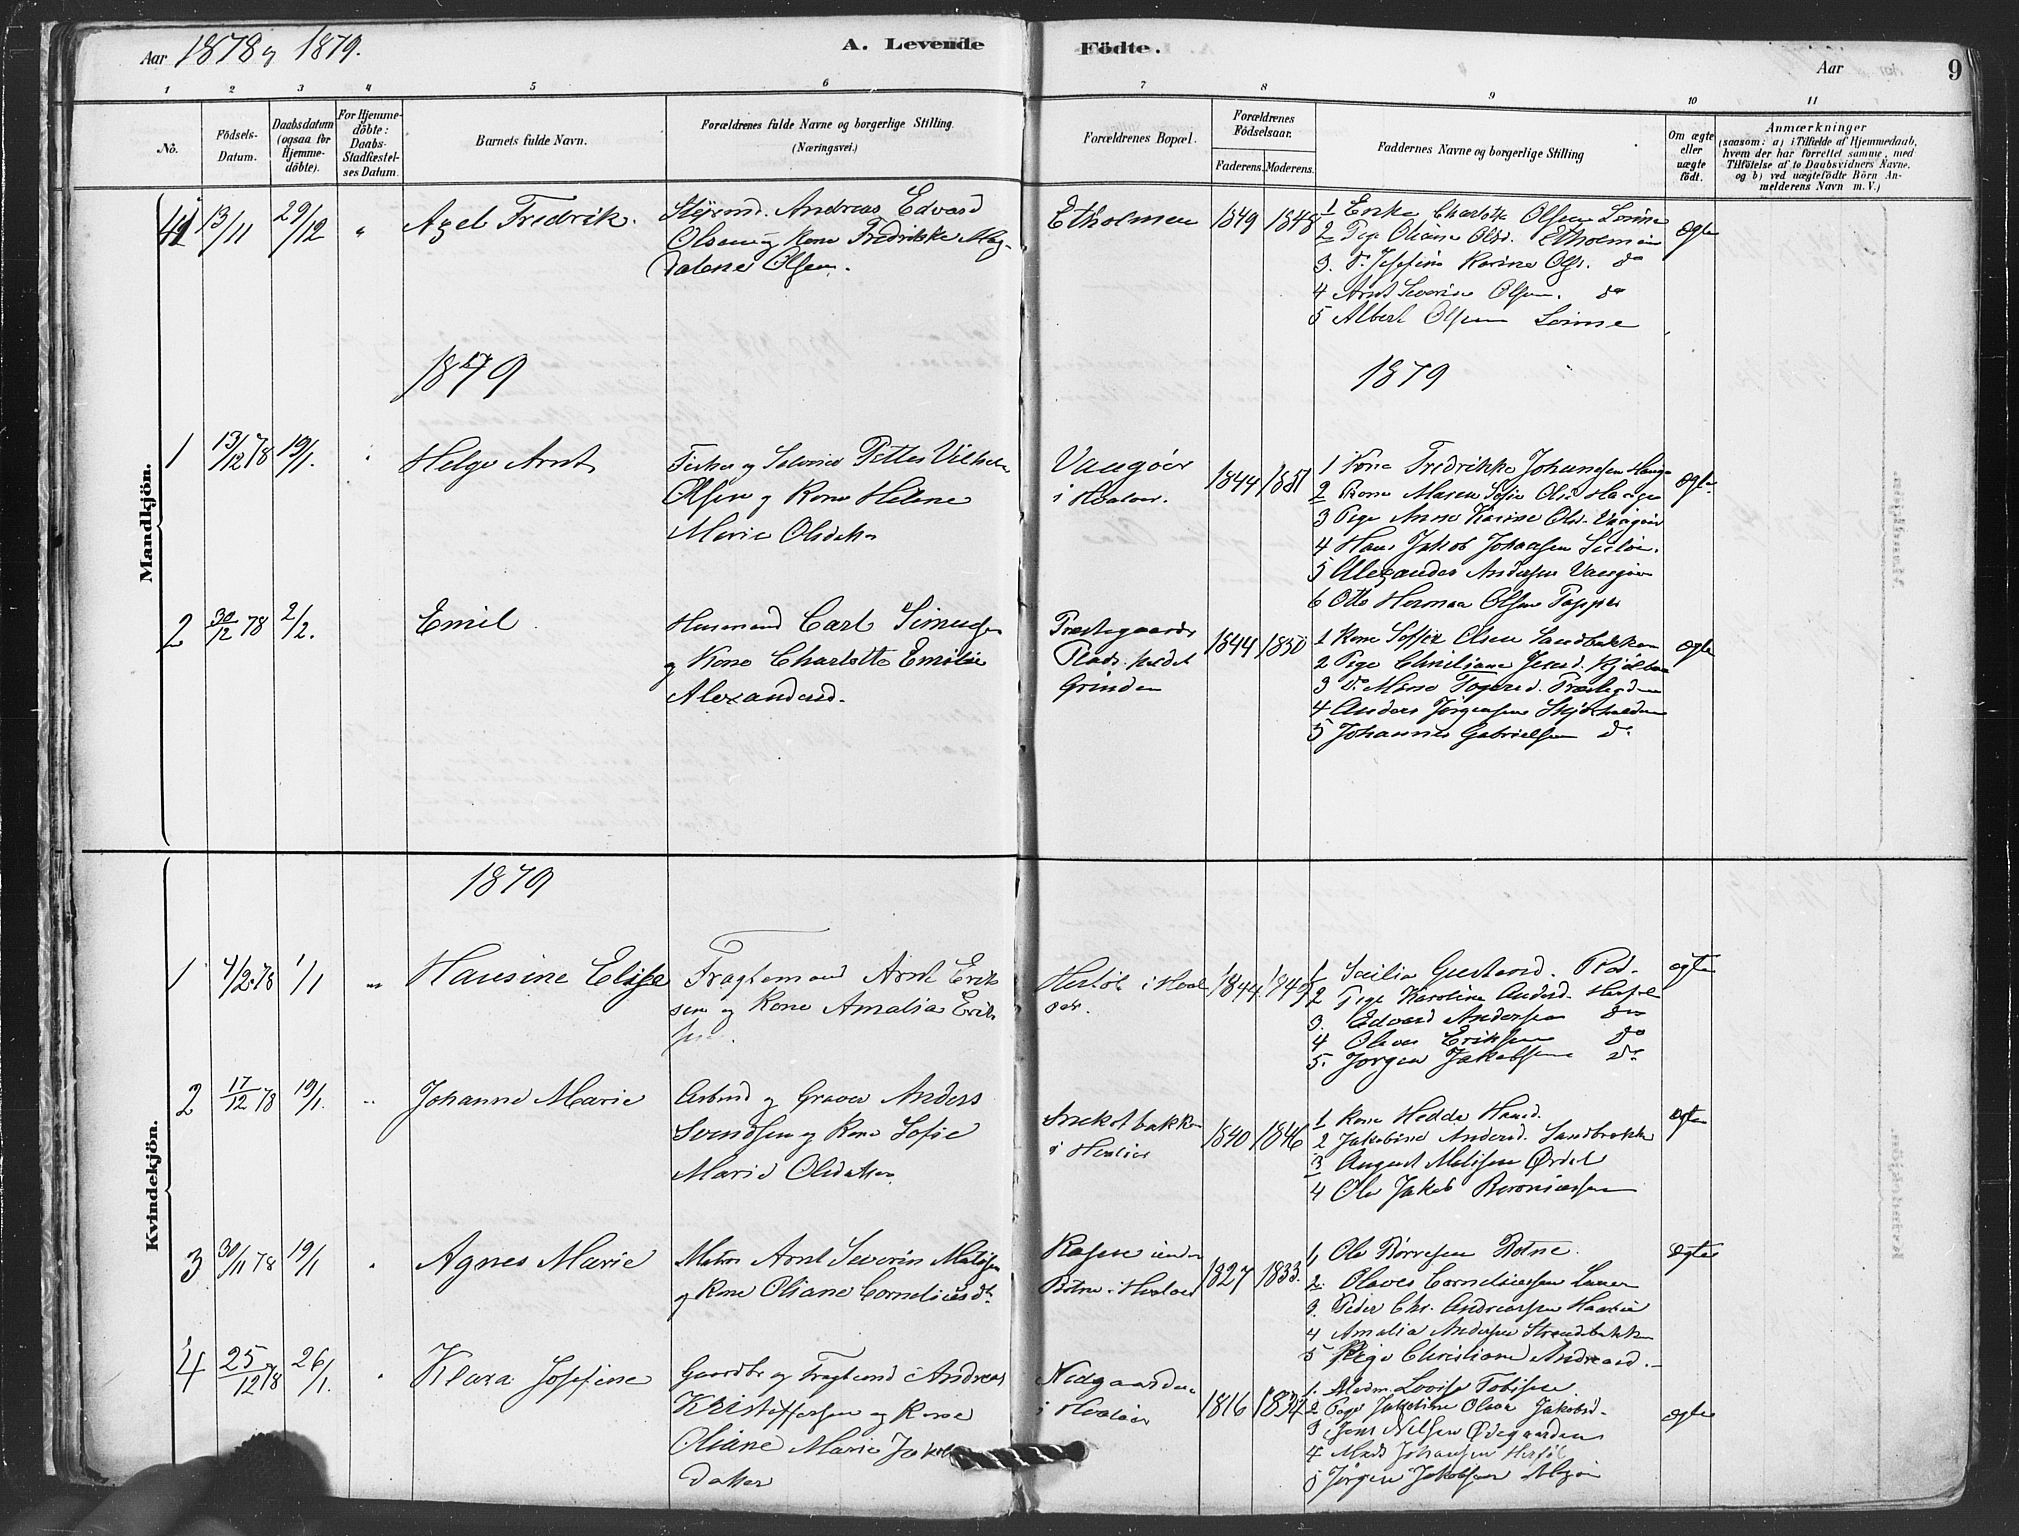 Aar 1878 og 1879.
A. Levende Födte.
Aar 9
1 2 3 4 5 6 7 8 9 10 11
No.
Födsels-
Datum.
Daabsdatum
(ogsaa for
Hjemme-
döbte).
For Hjemme-
döbte:
Daabs-
Stadfæstel-
ses Datum.
Barnets fulde Navn.
Forældrenes fulde Navne og borgerlige Stilling.
(Næringsvei.)
Forældrenes Bopæl.
Forældrenes
Födselsaar.
Faderens. Moderens.
Faddernes Navne og borgerlige Stilling
Om ægte
eller
uægte
født.
Anmærkninger
(saasom: a) i Tilfælde af Hjemmedaab,
hvem der har forrettet samme, med
Tilföielse af to Daabsvidners Navne.
og b) ved uægtefödte Börn An-
melderens Navn m. V.)
Mandkjön.
41 13/11 29/12 "
Axel Fredrik.
Styrmd. Andreas Edvard
Olsen og Kone Fredrikke Mag-
dalene Olsen.
Etholmen
1849 1848
1 Enke Charlotte Olsen
2 Pige Oliane Olsd. Etholmen
3. do Josefine Karine Olsd. do
4 Arnt Severin Olsen. do
5 Albert Olsen
Ægte
1879
1879
1 13/12 78 19/1.
Helge Arnt
Fisker og Petter Vilhelm
Olsen og Kone Helene
Marie Olsdatter
i Hvaløer.
1844 1851
1 Kone Fredrikke Johansen
2 Kone Maren Sofie Olsd
3 Pige Anne Karine Olsd.
4 Hans Jakob Johansen
5 Alexander Andersen
6 Otto Herman Olsen
Ægte
2 30/12 78 2/2.
Emil.
Husmand Carl Simensen
og Kone Charlotte Emilie
Alexandersd.
Præstegaards
Plads kaldet
Grinden
1844 1850
1 Kone Sofie Olsen Sandbakken
2 Pige Christiane
3 do
4 Anders Jørgensen
5 Johannes Gabrielsen do
Ægte
Kvindekjön.
1879
1 4/12 78 1/1 "
Hansine Elise
Fragtemand Arnt Erik
sen og Kone Amalia Erik
sen.
Herføl i Hval
øer.
1844 1849
1 Gustavsd.
2 Pige Karoline Andersd. Herføl
3. Edvard Andersen do
4 Olaves Eriksen do
5. Jørgen Jakobsen do
Ægte
2 17/12 78 19/1. "
Johanne Marie
Arbmd og Graver Anders
Svendsen og Kone Sofie
Marie Olsdatter
i Hvaløer
1840 1846
1 Kone Hedda Hansd.
2 Jakobine Andersd. Sandbrække
3 August Mathisen Ørdal
4 Ole Jakob
Ægte
3 30/11 78 19/1 "
Agnes Marie
Matros Arnt Severin Mathisen
og Kone Oliane Corneliusdt.
under
Botne i Hvaløer
1827 1833.
1, Ole Børresen Botne.
2. Olaves Corneliussen
3. Peder Chr. Andreassen
4 Amalia Andersen Strandbakken
5 Pige Christiane Andreasd.
Ægte
4 25/12 78 26/1. "
Klara Josefine
Gaardbr og Fragtemd Andreas
Kristoffersen og Kone
Oliane Marie Jakobs
datter
Nedgaarden
i Hvaløer
1816 1834
1. Madm. Lovise Tobisen
2 Pige Jakobine Olava Jakobsd.
3 Jens Nilsen Ødegaarden
4 Mads Johansen Herføl
5 Jørgen Jakobsen
Ægte